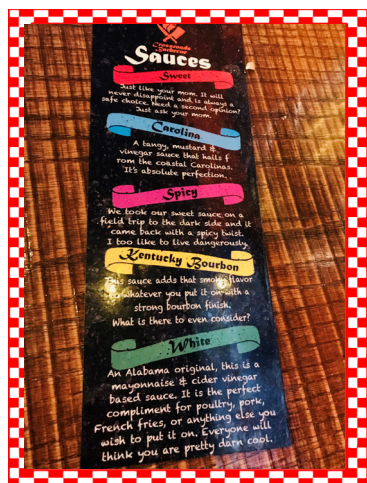 Crossroads
Barbecue
Sauces
Sweet
Just like your mom. It will
never disappoint and is always a
safe choice. Need a second opinion?
Just ask your mom.
Carolina
A tangy, mustard &
vinegar sauce that hails f
rom the coastal Carolinas.
It's absolute perfection.
Spicy
We took our sweet sauce on a
field trip to the dark side and it
came back with a spicy twist.
I too like to live dangerously.
Kentucky Bourbon
This sauce adds that smoky flavor
to whatever you put it on with a
strong bourbon finish.
What is there to even consider?
White
An Alabama original, this is a
mayonnaise & cider vinegar
based sauce. It is the perfect
compliment for poultry, pork,
French fries, or anything else you
wish to put it on. Everyone will
think you are pretty darn cool.